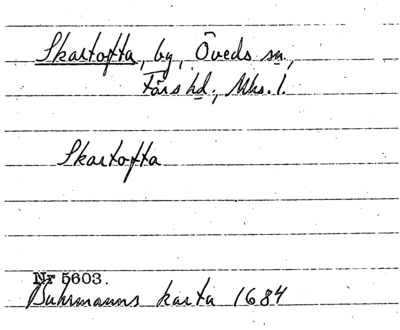 Skartofta, by, Öveds sn.,
Färs hd., Mhs. l.
Skartofta
Nr 5603.
Buhrmanns karta 1684